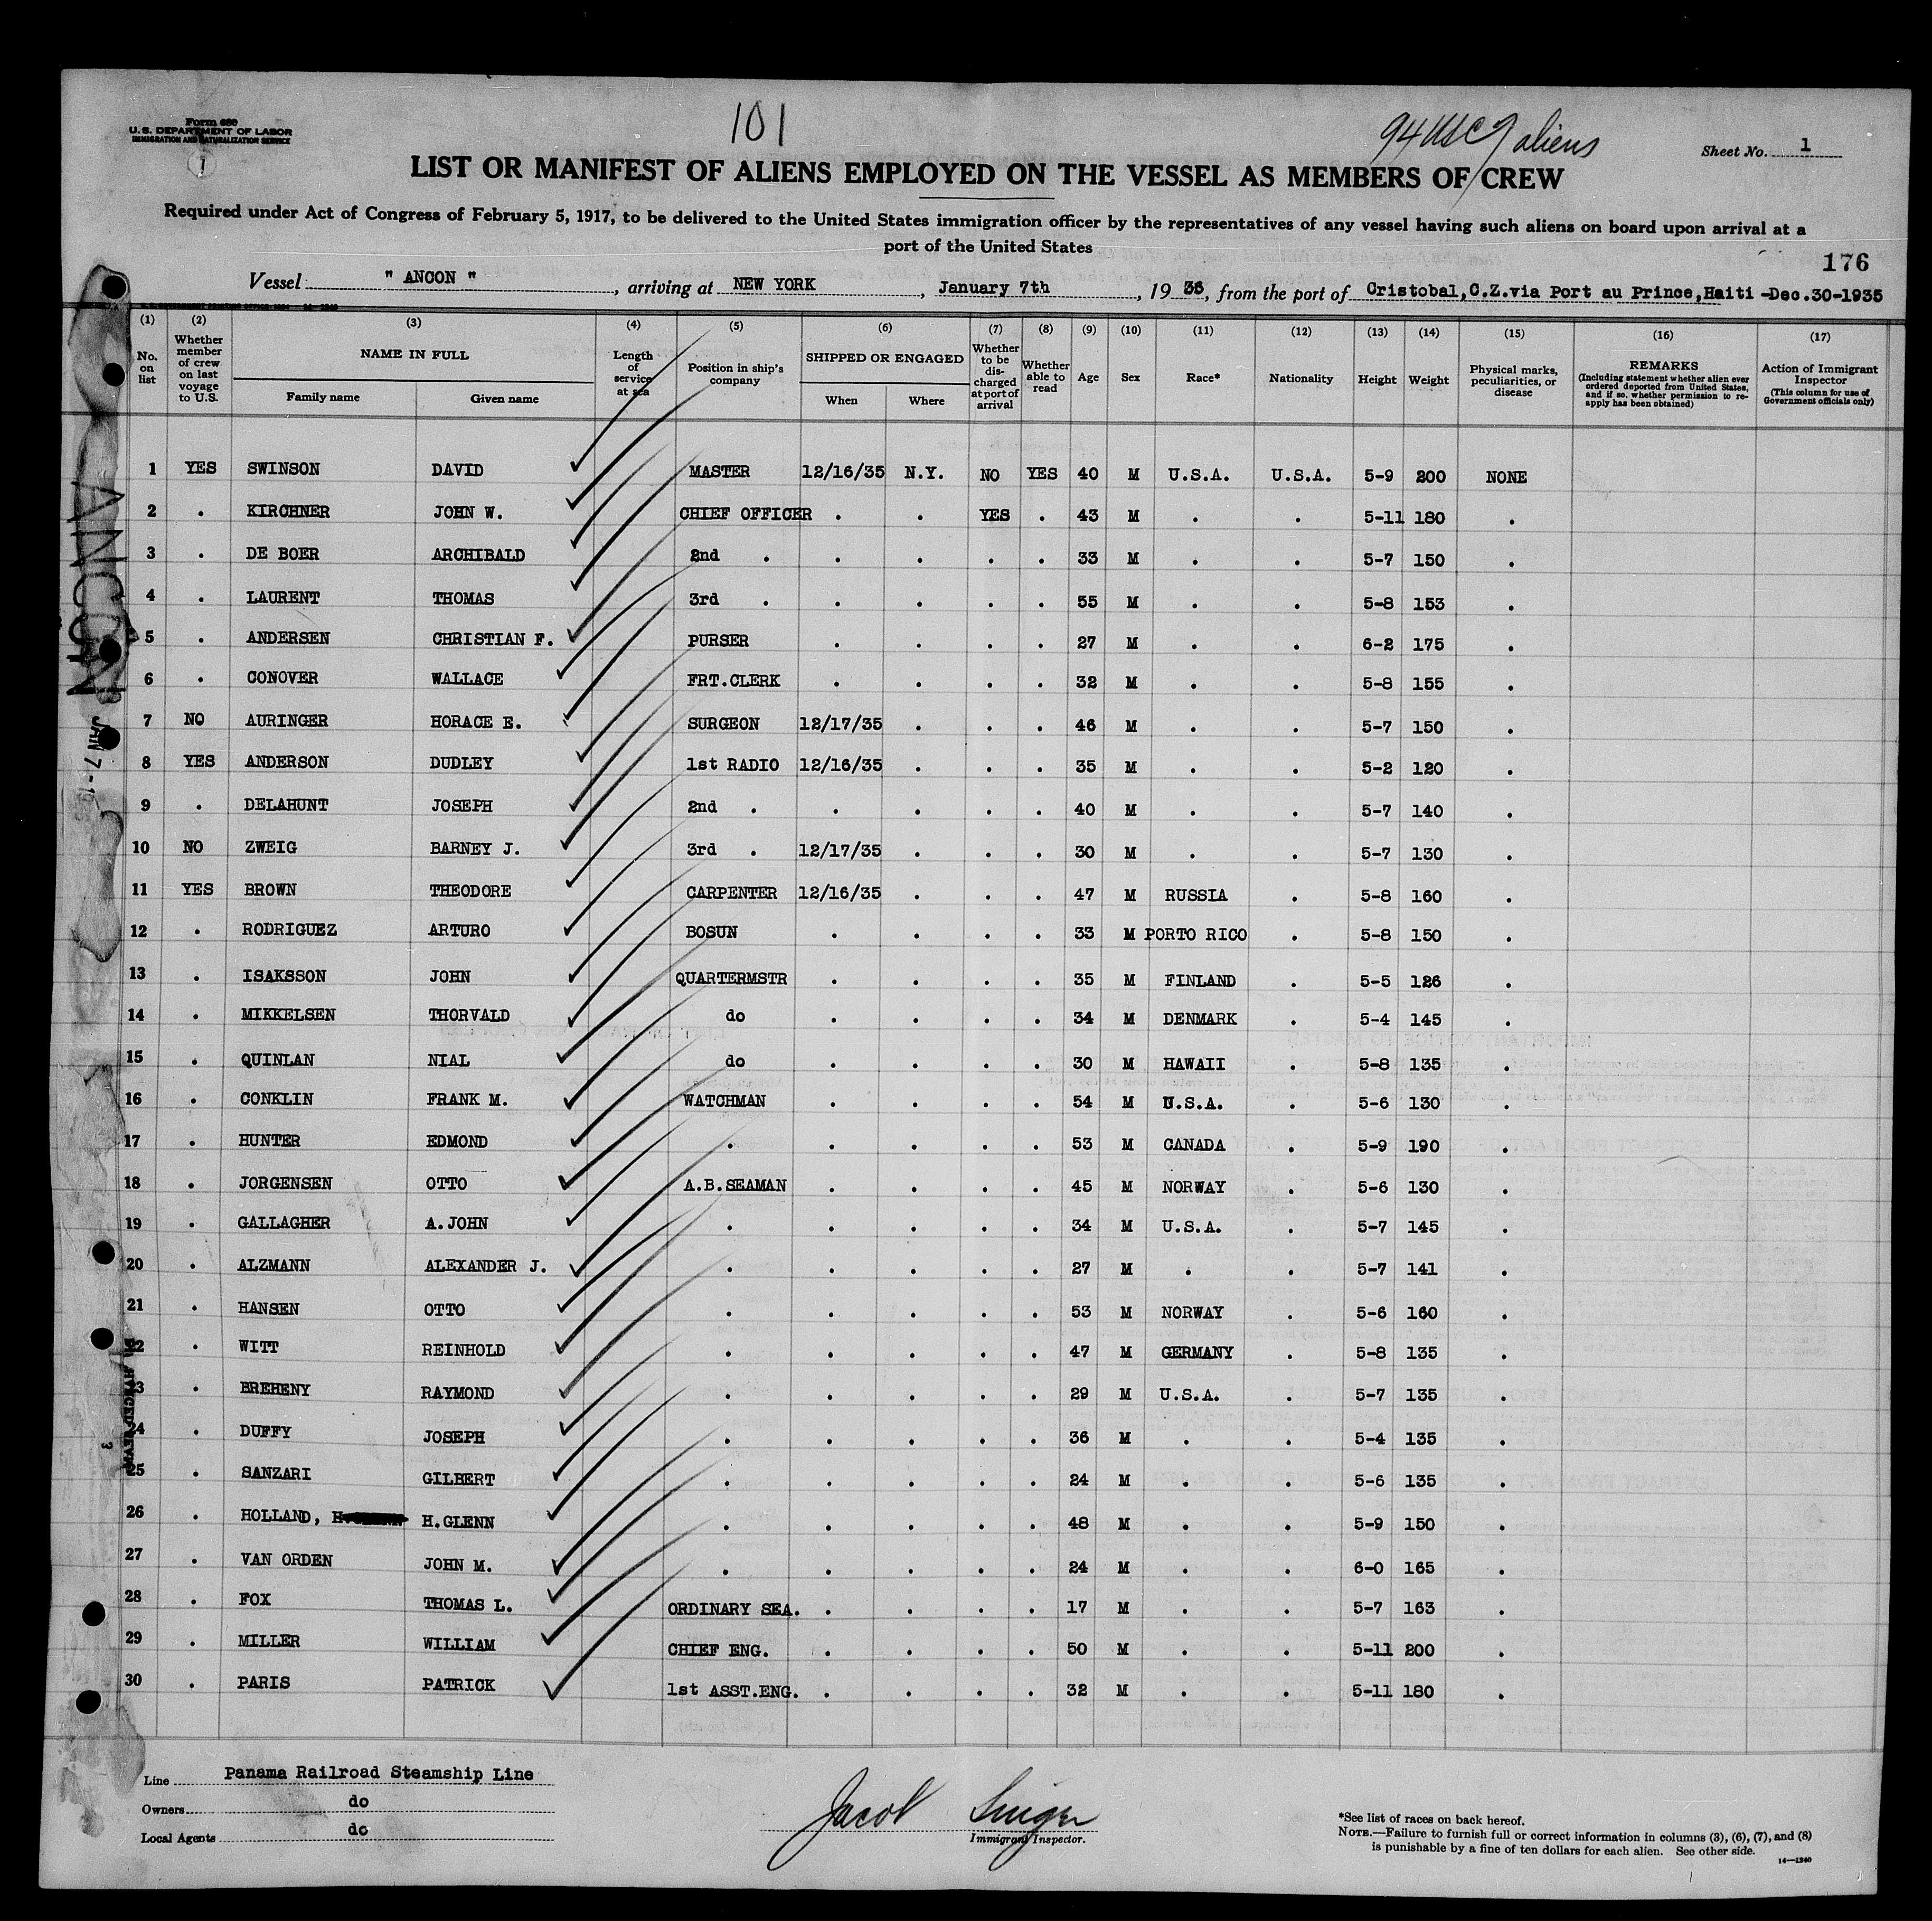 101
94 USC 7 aliens
Form 680
U. S. DEPARTMENT OF LABOR
IMMIGRATION AND NATURALIZATION SERVICE
1
Sheet No. 1
LIST OR MANIFEST OF ALIENS EMPLOYED ON THE VESSEL AS MEMBERS OF CREW
Required under Act of Congress of February 5, 1917, to be delivered to the United States immigration officer by the representatives of any vessel having such aliens on board upon arrival at a
port of the United States
176
Vessel " ANCON ", arriving at NEW YORK, January 7th, 19 36, from the port of Cristobal,C.Z.via Port au Prince,Haiti -Dec.30-1935
(1) (2) (3) (4) (5) (6) (7) (8) (9) (10) (11) (12) (13) (14) (15) (16) (17)
No. on list
Whether member of crew on last voyage to U.S.
NAME IN FULL
Family name
Given name
Length of service at sea
Position in ship's company
SHIPPED OR ENGAGED
When
Where
Whether to be dis-charged at port of arrival
Whether able to read
Age
Sex
Race*
Nationality
Height
Weight
Physical marks, peculiarities, or disease
REMARKS
(Including statement whether alien ever ordered deported from United States, and if so, whether permission to re-apply has been obtained)
Action of Immigrant Inspector
(This column for use of Government officials only)
1 YES SWINSON DAVID MASTER 12/16/35 N.Y. NO YES 40 M U.S.A. U.S.A. 5-9 200 NONE
2 . KIRCHNER JOHN W. CHIEF OFFICER . . YES . 43 M . . 5-11 180 .
3 . DE BOER ARCHIBALD 2nd . . . . . 33 M . . 5-7 150 .
4 . LAURENT THOMAS 3rd . . . . . 55 M . . 5-8 153 .
5 . ANDERSEN CHRISTIAN F. PURSER . . . . 27 M . . 6-2 175 .
6 . CONOVER WALLACE FRT.CLERK . . . . 32 M . . 5-8 155 .
7 NO AURINGER HORACE E. SURGEON 12/17/35 . . . 46 M . . 5-7 150 .
8 YES ANDERSON DUDLEY 1st RADIO 12/16/35 . . . 35 M . . 5-2 120 .
9 . DELAHUNT JOSEPH 2nd . . . . . 40 M . . 5-7 140 .
10 NO ZWEIG BARNEY J. 3rd . 12/17/35 . . . 30 M . . 5-7 130 .
11 YES BROWN THEODORE CARPENTER 12/16/35 . . . 47 M RUSSIA . 5-8 160 .
12 . RODRIGUEZ ARTURO BOSUN . . . . 33 M PORTO RICO . 5-8 150 .
13 . ISAKSSON JOHN QUARTERMSTR . . . . 35 M FINLAND . 5-5 126 .
14 . MIKKELSEN THORVALD do . . . . 34 M DENMARK . 5-4 145 .
15 . QUINLAN NIAL do . . . . 30 M HAWAII . 5-8 135 .
16 . CONKLIN FRANK M. WATCHMAN . . . . 54 M U.S.A. . 5-6 130 .
17 . HUNTER EDMOND . . . . . 53 M CANADA . 5-9 190 .
18 . JORGENSEN OTTO A.B.SEAMAN . . . . 45 M NORWAY . 5-6 130 .
19 . GALLAGHER A.JOHN . . . . . 34 M U.S.A. . 5-7 145 .
20 . ALZMANN ALEXANDER J. . . . . . 27 M . . 5-7 141 .
21 . HANSEN OTTO . . . . . 53 M NORWAY . 5-6 160 .
22 . WITT REINHOLD . . . . . 47 M GERMANY . 5-8 135 .
23 . BREHENY RAYMOND . . . . . 29 M U.S.A. . 5-7 135 .
24 . DUFFY JOSEPH . . . . . 36 M . . 5-4 135 .
25 . SANZARI GILBERT . . . . . 24 M . . 5-6 135 .
26 . HOLLAND, H.GLENN . . . . . 48 M . . 5-9 150 .
27 . VAN ORDEN JOHN M. . . . . . 24 M . . 6-0 165 .
28 . FOX THOMAS L. ORDINARY SEA. . . . . 17 M . . 5-7 163 .
29 . MILLER WILLIAM CHIEF ENG. . . . . 50 M . . 5-11 200 .
30 . PARIS PATRICK 1st ASST.ENG. . . . . 32 M . . 5-11 180 .
ANCON
JAN 7-19
Line Panama Railroad Steamship Line
Owners do
Local Agents do
Jacob Singer
Immigrant Inspector.
*See list of races on back hereof.
NOTE.—Failure to furnish full or correct information in columns (3), (6), (7), and (8)
is punishable by a fine of ten dollars for each alien. See other side.
14—1240